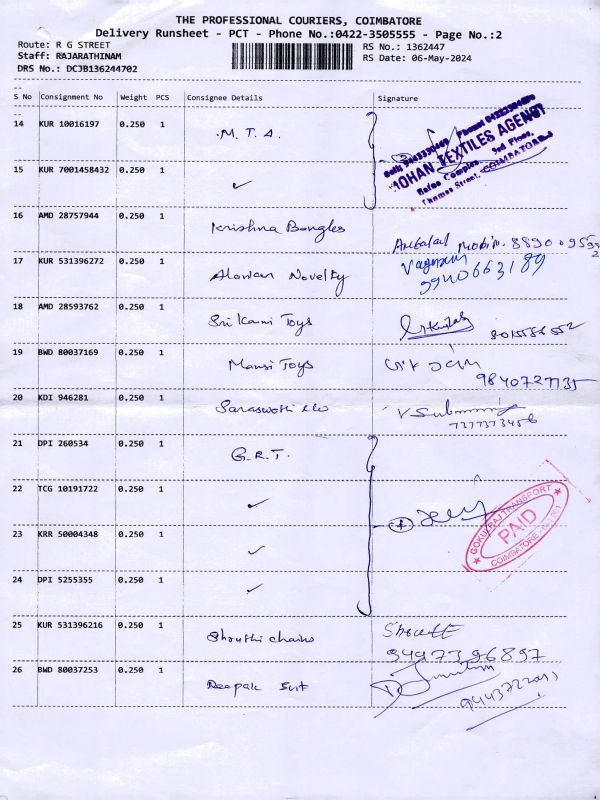 THE PROFESSIONAL COURIERS, COIMBATORE
Delivery Runsheet - PCT - Phone No.:0422-3505555 - Page No.:2
Route: R G STREET RS No.: 1362447
Staff: RAJARATHINAM RS Date: 06-May-2024
DRS No.: DCJB136244702
S No Consignment No Weight PCS Consignee Details Signature
14 KUR 10016197 0.250 1 M.T.A.
MOHAN TEXTILES AGENCY
3rd Floor,
Thomas Street, COIMBATORE
15 KUR 7001458432 0.250 1 ✓
16 AMD 28757944 0.250 1 Krishna Bangles
17 KUR 531396272 0.250 1 Novelty
9940663189
18 AMD 28593762 0.250 1 Sri Kani Toys
19 BWD 80037169 0.250 1 Mansi Toys
9840727135
20 KDI 946281 0.250 1
73737373456
21 DPI 260534 0.250 1 G.R.T.
22 TCG 10191722 0.250 1 ✓
GOKULRAJ TRANSPORT
PAID
23 KRR 50004348 0.250 1 ✓
24 DPI 5255355 0.250 1 ✓
25 KUR 531396216 0.250 1 Shruthi chains
9497396897
26 BWD 80037253 0.250 1 Deepak